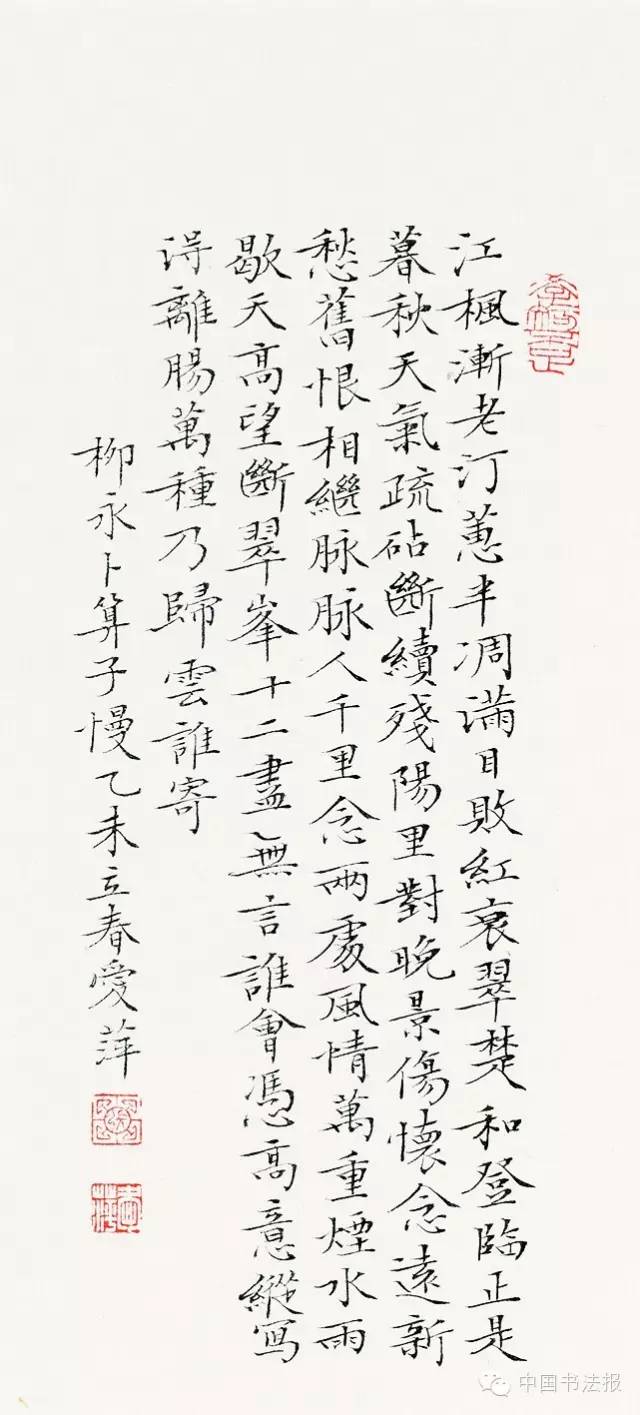 江楓漸老汀蕙半凋滿目敗紅衰翠楚和登臨正是
暮秋天氣疏砧斷續殘陽里對晚景傷懷念遠新
愁舊恨相繼脉脉人千里念兩處風情萬重煙水雨
歇天高望斷翠峯十二盡無言誰會馮高意縱寫
得離腸萬種乃歸雲誰寄
柳永卜算子慢乙未立春愛萍
中国书法报